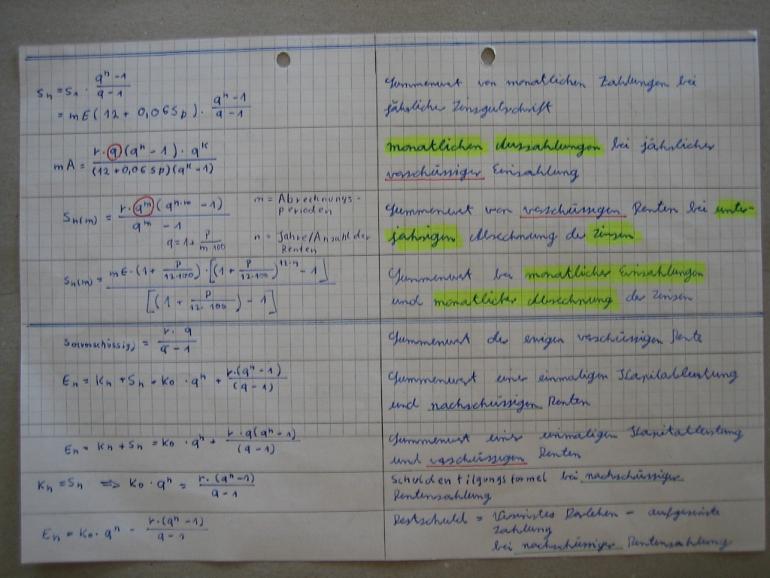 Sₙ = S₁ · (qⁿ - 1)/(q - 1)
= mE (12 + 0,065p) · (qⁿ - 1)/(q - 1)
Summenwert von monatlichen Zahlungen bei
jährlicher Zinsgutschrift
mA = (r · q (qⁿ - 1) · qᵏ)/((12 + 0,065p)(qⁿ - 1))
monatlichen Auszahlungen bei jährlicher
vorschüssiger Einzahlung
Sₙ(m) = (r · qᵐ (qⁿ·ᵐ - 1))/(qᵐ - 1)
q = 1 + p/(m·100)
m = Abrechnungs-
perioden
n = Jahre/Anzahl der
Renten
Summenwert von vorschüssigen Renten bei unter-
jährigen Abrechnung der Zinsen
Sₙ(m) = (mE · (1 + p/(12·100)) · [(1 + p/(12·100))¹²·ⁿ - 1])/([(1 + p/(12·100)) - 1])
Summenwert bei monatlicher Einzahlungen
und monatlicher Abrechnung der Zinsen
= (r · q)/(q - 1)
Summenwert der ewigen vorschüssigen Rente
Eₙ = Kₙ + Sₙ = K₀ · qⁿ + (r · (qⁿ - 1))/(q - 1)
Summenwert einer einmaligen Kapitalleistung
und nachschüssigen Renten
Eₙ = Kₙ + Sₙ = K₀ · qⁿ + (r · q(qⁿ - 1))/(q - 1)
Summenwert einer einmaligen Kapitalleistung
und vorschüssigen Renten
Kₙ = Sₙ ⇒ K₀ · qⁿ = (r · (qⁿ - 1))/(q - 1)
Schuldentilgungsformel bei nachschüssiger
Rentenzahlung
Eₙ = K₀ · qⁿ - (r · (qⁿ - 1))/(q - 1)
Restschuld = Verzinstes Darlehen - aufgezinste
Zahlung
bei nachschüssiger Rentenzahlung